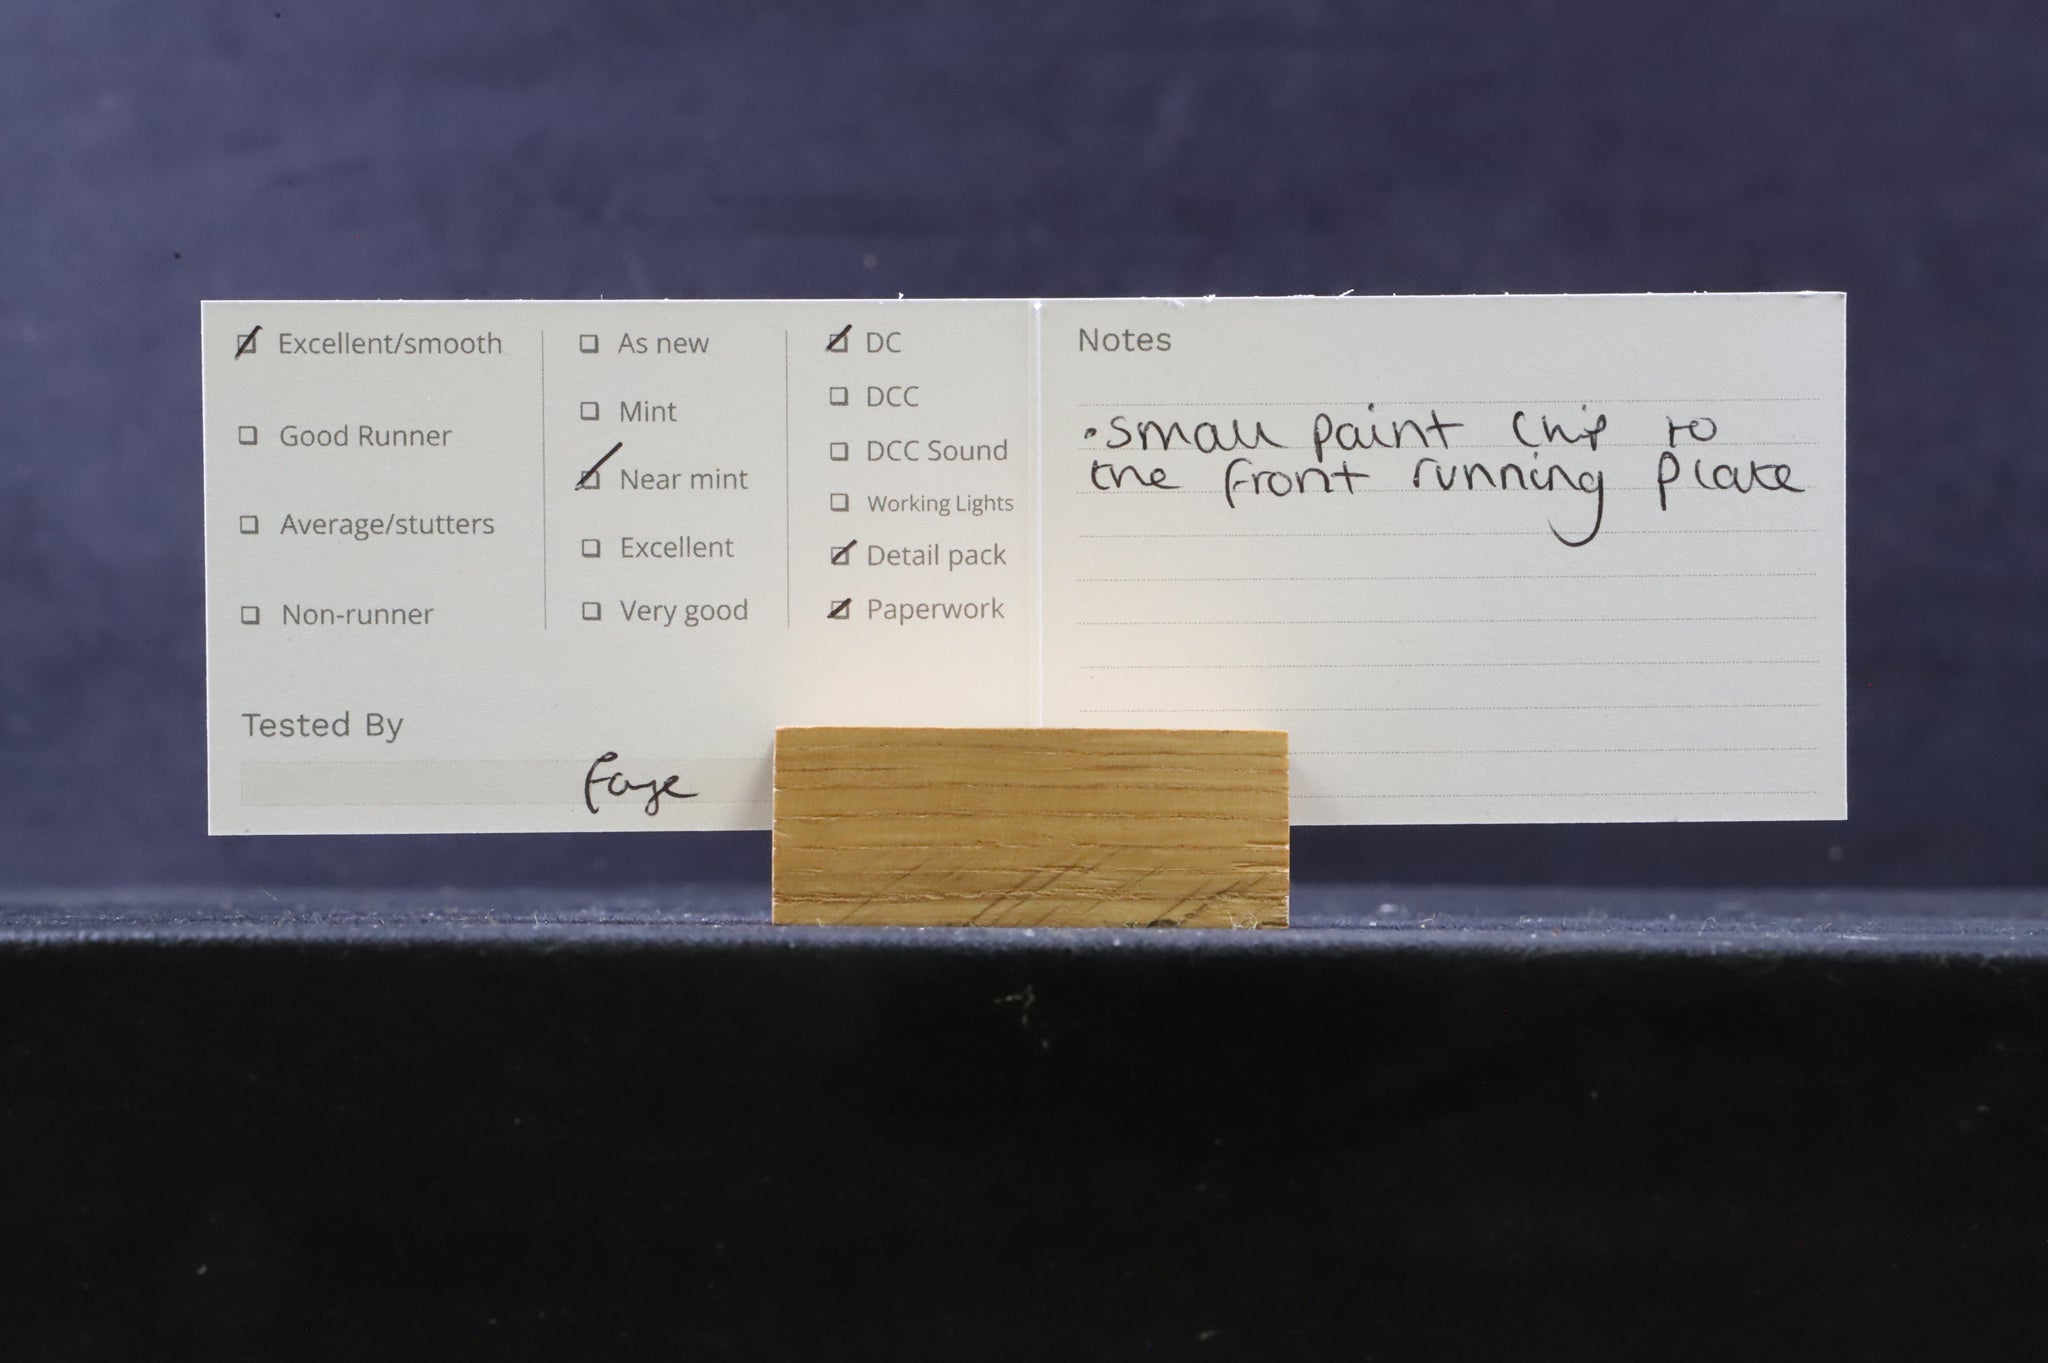 Excellent/smooth
Good Runner
Average/stutters
Non-runner
As new
Mint
Near mint
Excellent
Very good
DC
DCC
DCC Sound
Working Lights
Detail pack
Paperwork
Tested By
Faye
Notes
• small paint chip to
the front running plate